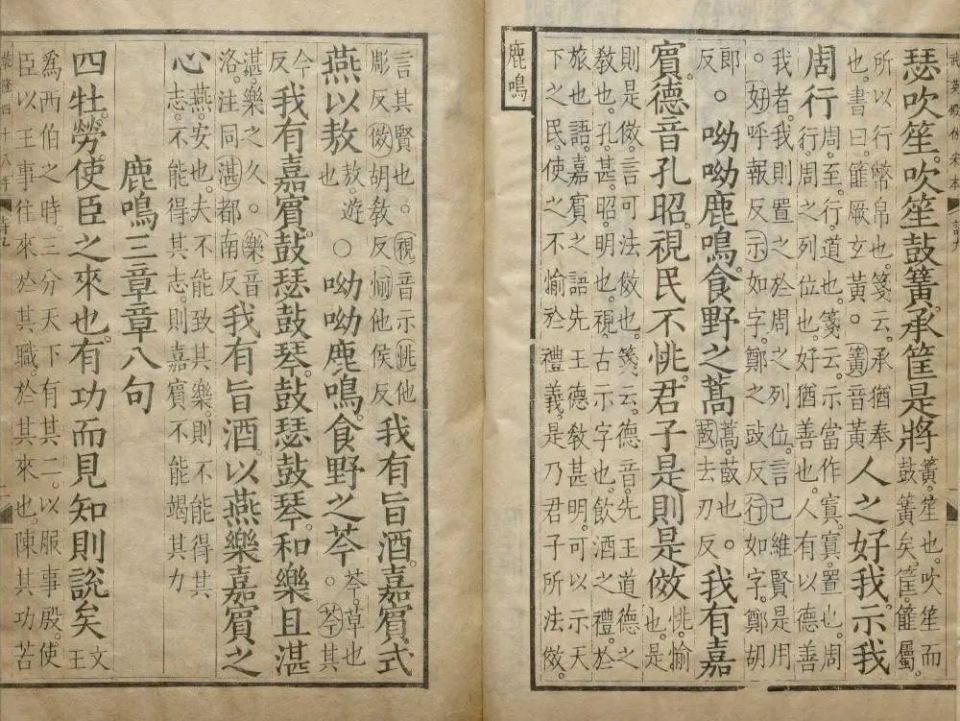 武英殿仿宋本
瑟吹笙。吹笙鼓簧。承筐是將簧。笙也。吹笙而鼓簧矣。筐。篚屬。
所以行幣帛也。箋云。承猶奉也。書曰。篚厥玄黃。簧音黃人之好我。示我
周行周。至。行。道也。箋云。示當作寘。寘。置也。周行。周之列位也。好猶善也。人有以德善
我者。我則置之於周之列位。言己維賢是用。好呼報反示如字。鄭之豉反行如字。鄭胡
郎反。呦呦鹿鳴。食野之蒿蒿。菣也。菣去刃反。我有嘉
賓。德音孔昭。視民不恌。君子是則是傚恌。愉也。是
則是傚。言可法傚也。箋云。德音。先王道德之教也。孔。甚。昭。明也。視。古示字也。飲酒之禮。於
旅也語。嘉賓之語先王德教甚明。可以示天下之民。使之不愉於禮義。是乃君子所法傚
鹿鳴
言其賢也。視音示恌他彫反傚胡教反愉他侯反我有旨酒。嘉賓式
燕以敖敖。遊也○呦呦鹿鳴。食野之芩。芩。草也芩其
今反我有嘉賓。鼓瑟鼓琴。鼓瑟鼓琴。和樂且湛
湛。樂之久。樂音洛。注同湛都南反我有旨酒。以燕樂嘉賓之
心燕。安也。夫不能致其樂。則不能得其志。不能得其志。則嘉賓不能竭其力
鹿鳴三章章八句
四牡。勞使臣之來也。有功而見知則說矣文王
為西伯之時。三分天下有其二。以服事殷。使臣以王事往來於其職。於其來也。陳其功苦
乾隆四十八年
詩九